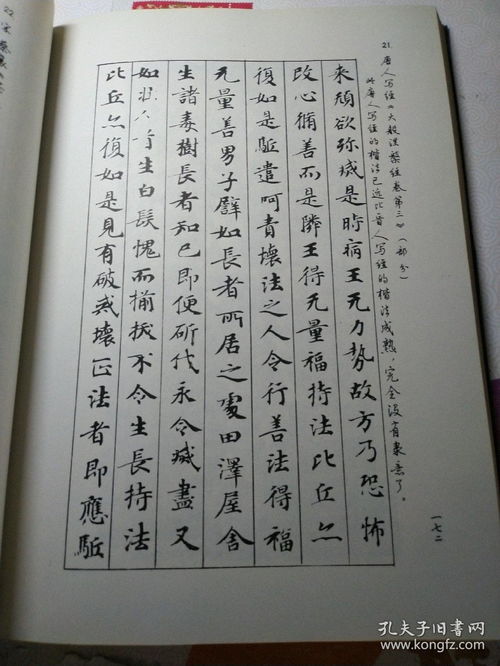 21.唐人写经《大般涅槃经卷第三》(部分)
此唐人写经的楷法已远比晋人写经的楷法成熟,完全没有隶意了。
来頑欲弥咸是時病王无力勢故方乃恐怖
改心脩善而是隣王得无量福持法比丘亦
復如是駈遣呵責壞法之人令行善法得福
无量善男子譬如長者所居之處田澤屋舍
生諸毒樹長者知已即便斫伐永令滅盡又
如壯人首生白髮愧而揃拔不令生長持法
比丘亦復如是見有破戒壞正法者即應駈
一七二
22.
孔夫子旧书网
www.kongfz.com